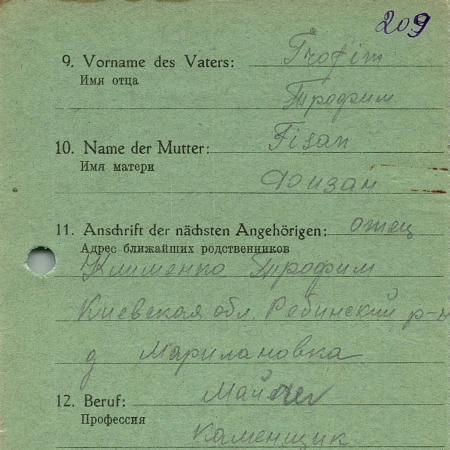 209
9. Vorname des Vaters: Trofim
Имя отца
Трофим
10. Name der Mutter: Fisan
Имя матери
Физан
11. Anschrift der nächsten Angehörigen: отец
Адрес ближайших родственников
Клименко Трофим
Киевская обл. Ребинский р-н
д Марилановка
12. Beruf:
Профессия
каменщик